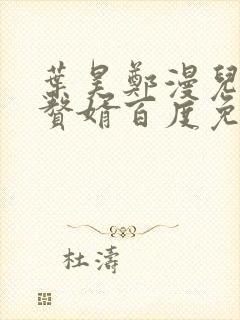 葉昊鄭漫兒
贅婿百度免
杜濤